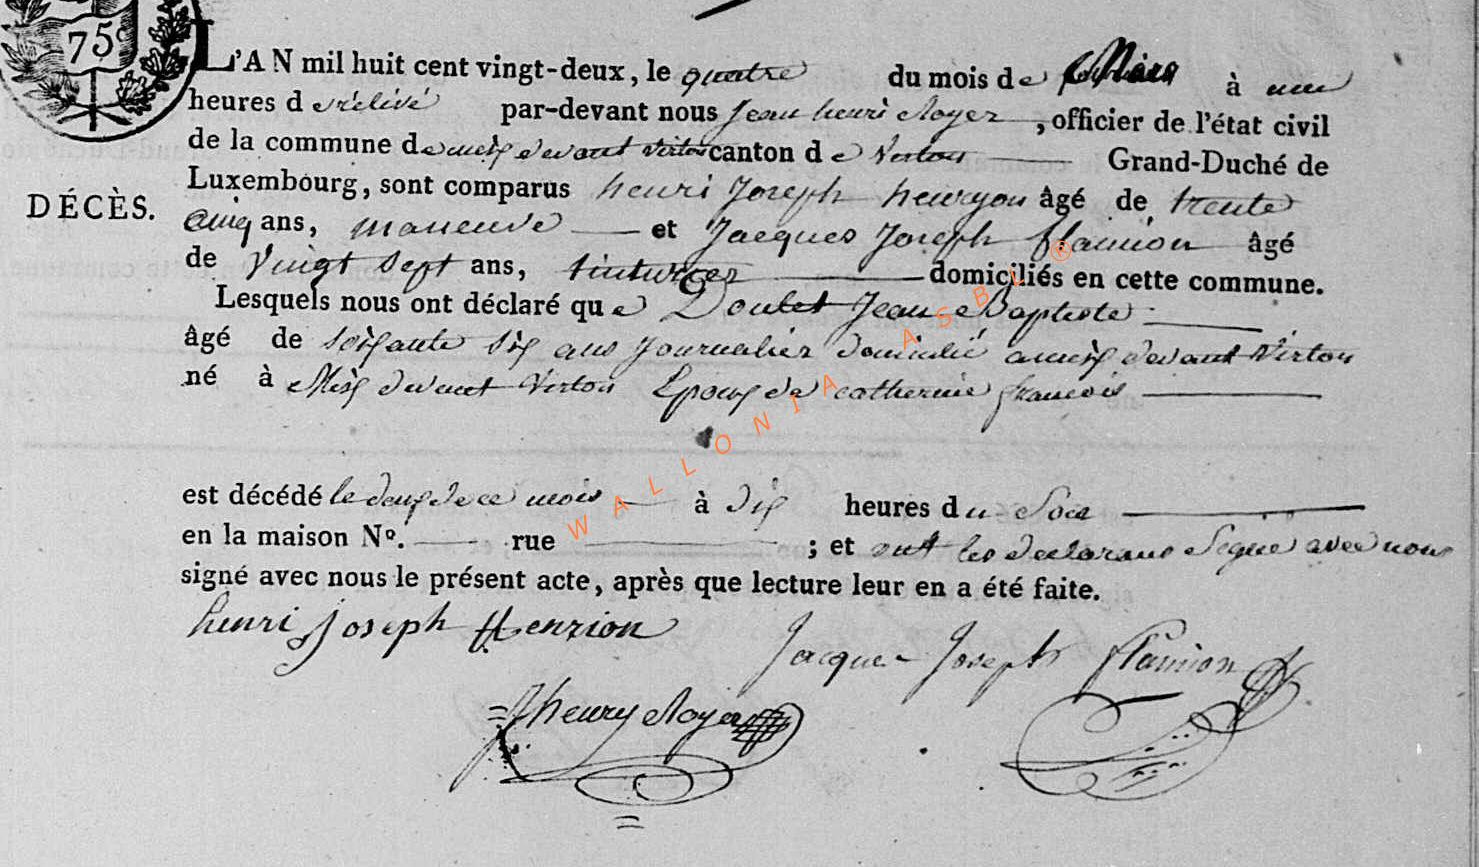 75
L'AN mil huit cent vingt-deux, le quatre du mois de Mars à une
heures de rélivé par-devant nous Jean henri Royer, officier de l'état civil
de la commune de meix devant virton canton de Virton Grand-Duché de
Luxembourg, sont comparus henri Joseph henryon âgé de trente
DÉCÈS.
cinq ans, maneuve et Jacques Joseph flamion âgé
de vingt sept ans, tinturier domiciliés en cette commune.
Lesquels nous ont déclaré que Doulet Jean Baptiste
âgé de soixante six ans journalier domicilié a meix devant Virton
né à Meix devant Virton Epoux de catherine francois
est décédé le deux de ce mois à dix heures du Soir
en la maison Nº. rue ; et ont les declarans Signé avec nous
signé avec nous le présent acte, après que lecture leur en a été faite.
henri Joseph Henrion
Jacque Joseph flamion
J henry Royer
WALLONIA ASBL ®